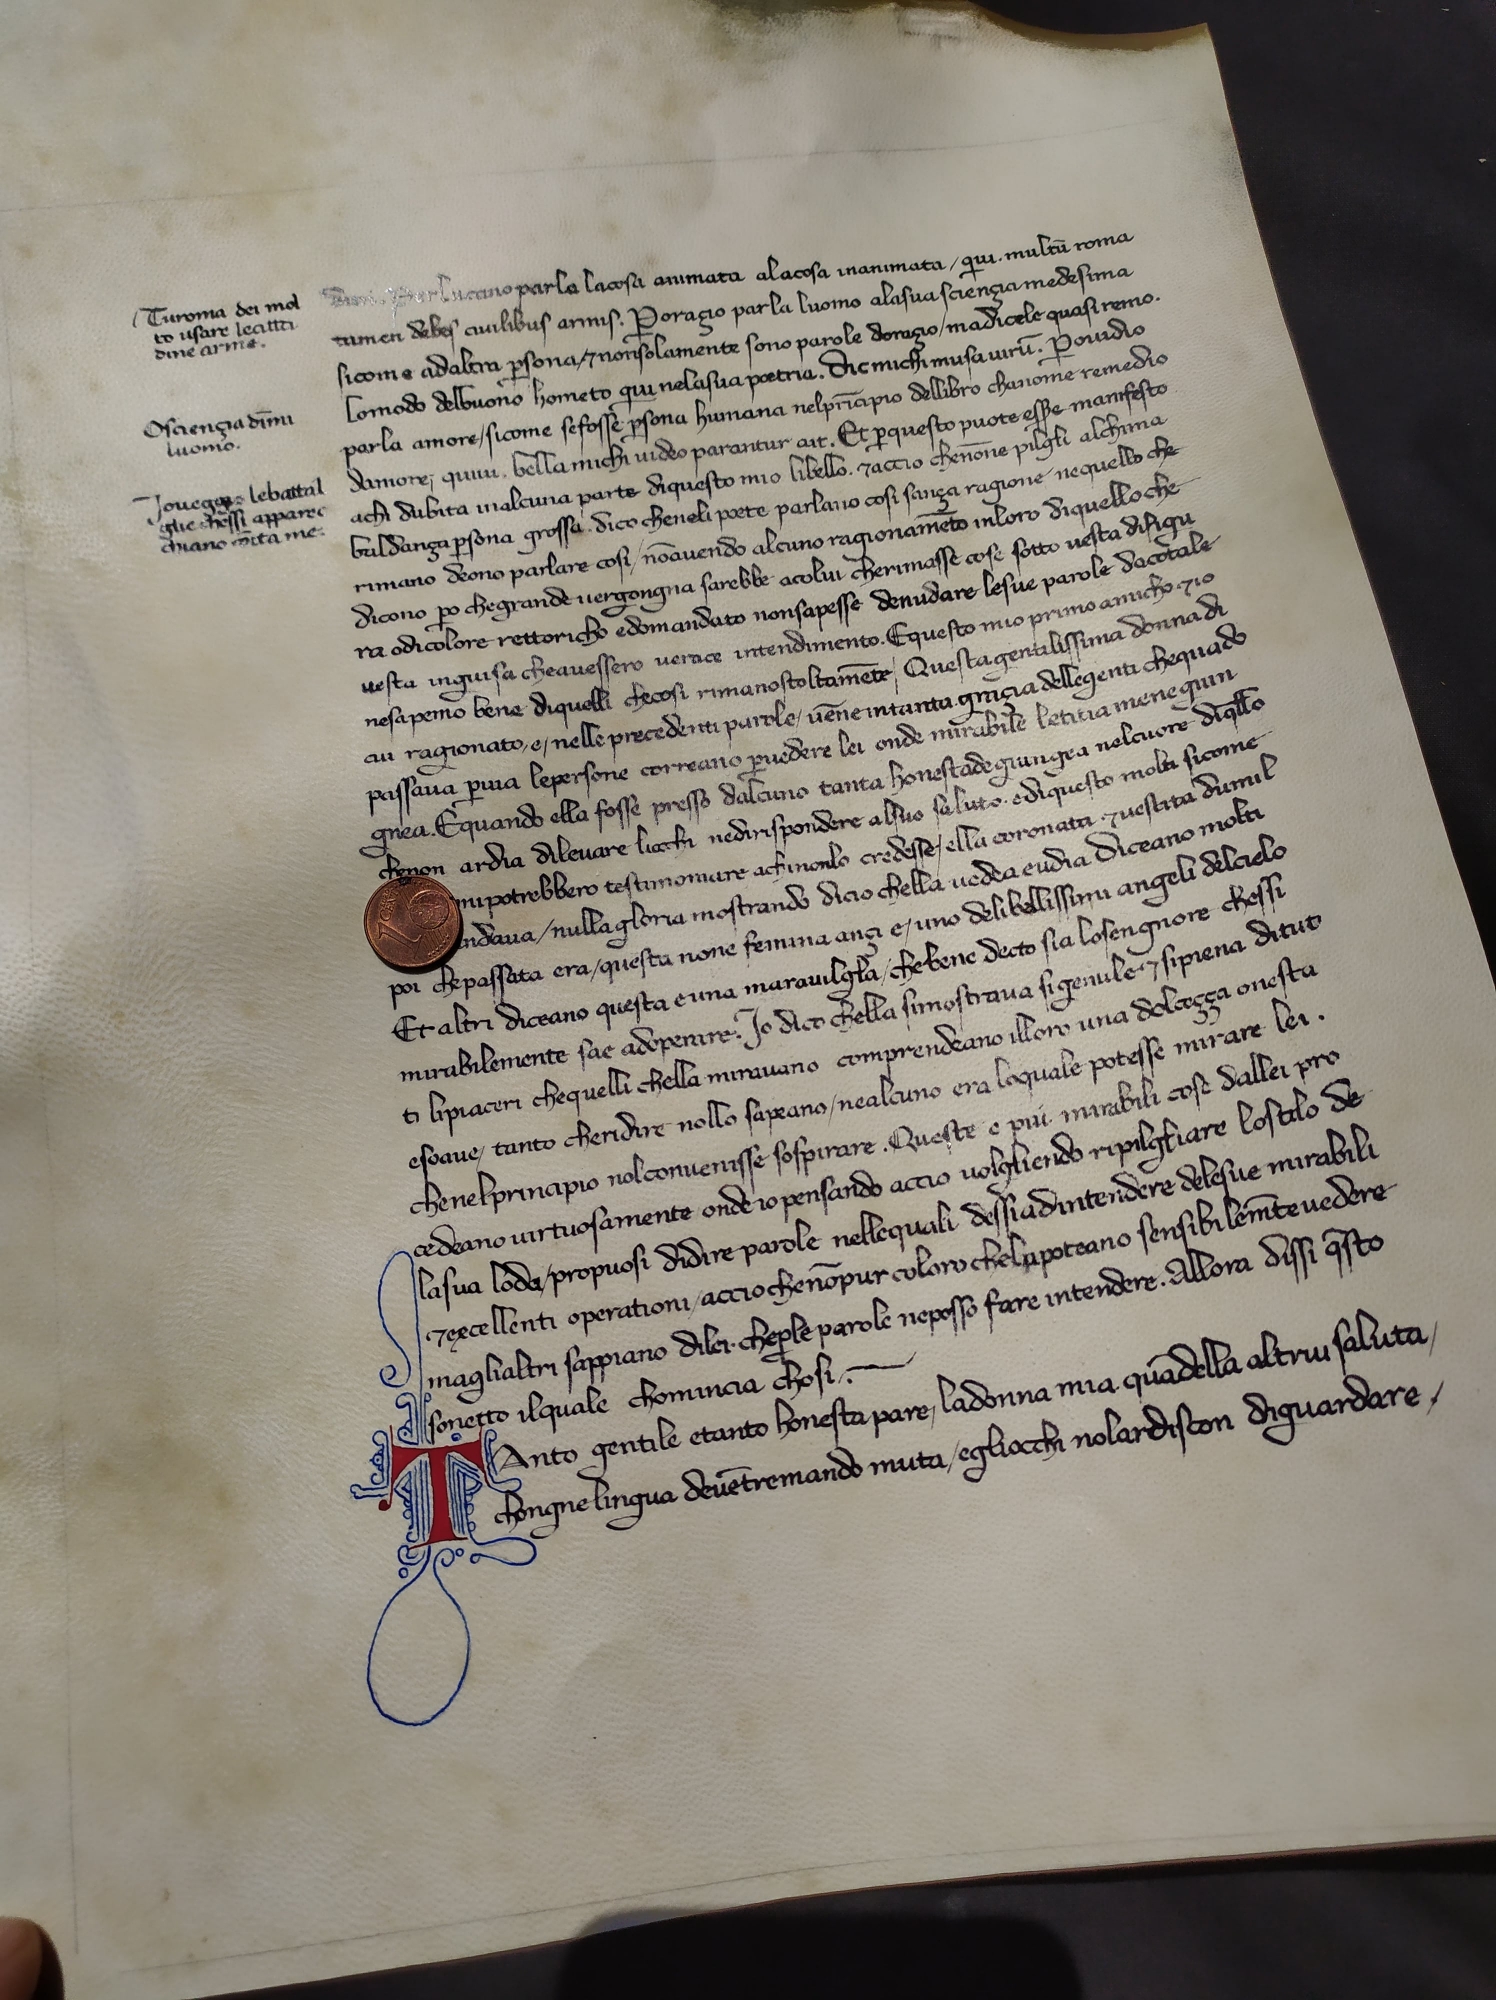 Turoma dei mol
to usare lecitti
dine arme.
Osciença dim̄i
luomo.
Joueggo lebattal
glie chessi apparec
chiano ꝯ̄tra me.
Per lucano parla lacosa animata alacosa inanimata / qui. multū roma
tamen debes ciuilibus armis. Poraçio parla luomo alasua sciença medesima
sicome adaltra ꝑsona / ⁊ nonsolamente sono parole doraçio / madicele quasi remo.
Lomodo delbuono hometo qui nelasua poetria. Dic michi musa uirū. Pouidio
parla amore / sicome sefosse ꝑsona humana nelprīcipio dellibro chanome remedio
damore; quiui. bella michi uideo parantur ait. Et ꝑquesto puote esse manifesto
achi dubita inalcuna parte diquesto mio libello. ⁊accio chenōne pilgli alchuna
baldança ꝑsona grossa. dico cheneli poete parlano cosi sança ragione nequello che
rimano deono parlare cosi / nōauendo alcuno ragionamēto inloro diquello che
dicono ꝑo chegrande uergongna sarebbe acolui cherimasse cose sotto uesta difigu
ra odicolore rettoricho edomandato nonsapesse denudare lesue parole dacotale
uesta inguisa cheauessero uerace intendimento. Equesto mio primo amicho ⁊ io
nesapemo bene diquelli checosi rimano stoltamēte / Questa gentilissima donna di
cui ragionato, e / nelle precedenti parole / uēne intanta graçia dellegenti chequādo
passaua ꝑuia lepersone correano ꝑuedere lei onde mirabile letitia mene giun
gnea. Equando ella fosse presso dalcuno tanta honestade giungea nelcuore diq̄llo
chenon ardia dileuare liocchi nedirispondere alsuo saluto. ediquesto molti sicome
mipotrebbero testimoniare achinonlo credesse / ella coronata ⁊ uestita dumil
ndaua / nulla gloria mostrando dicio chella uedea eudia diceano molti
poi chepassata era / questa none femina ançi e / uno delibellissimi angeli delcielo
Et altri diceano questa e una marauilglia / chebene decto sia losengnore chessi
mirabilemente sae adoperare. Jo dico chella simostraua sigentile ⁊ sipiena ditut
ti lipiaceri chequelli chella mirauano comprendeano illoro una dolceçça onesta
esoaue / tanto cheridire nollo sapeano / nealcuno era loquale potesse mirare lei.
chenelprincipio nolconuenisse sospirare. Queste e piu mirabili cose dallei pro
cedeano uirtuosamente onde io pensando accio uolgliendo ripilgliare lostilo de
lasua loda / propuosi didire parole nellequali dessi adintendere delesue mirabili
⁊eccellenti operationi / accio chenōpur coloro chelapoteano sensibilemēte uedere
magli altri sappiano dilei. cheꝑle parole neposso fare intendere. Allora dissi q̄sto
sonetto ilquale chomincia chosi.
TAnto gentile etanto honesta pare / ladonna mia quādella altrui saluta /
chongne lingua deuētremando muta / egliocchi nolardiscon diguardare /